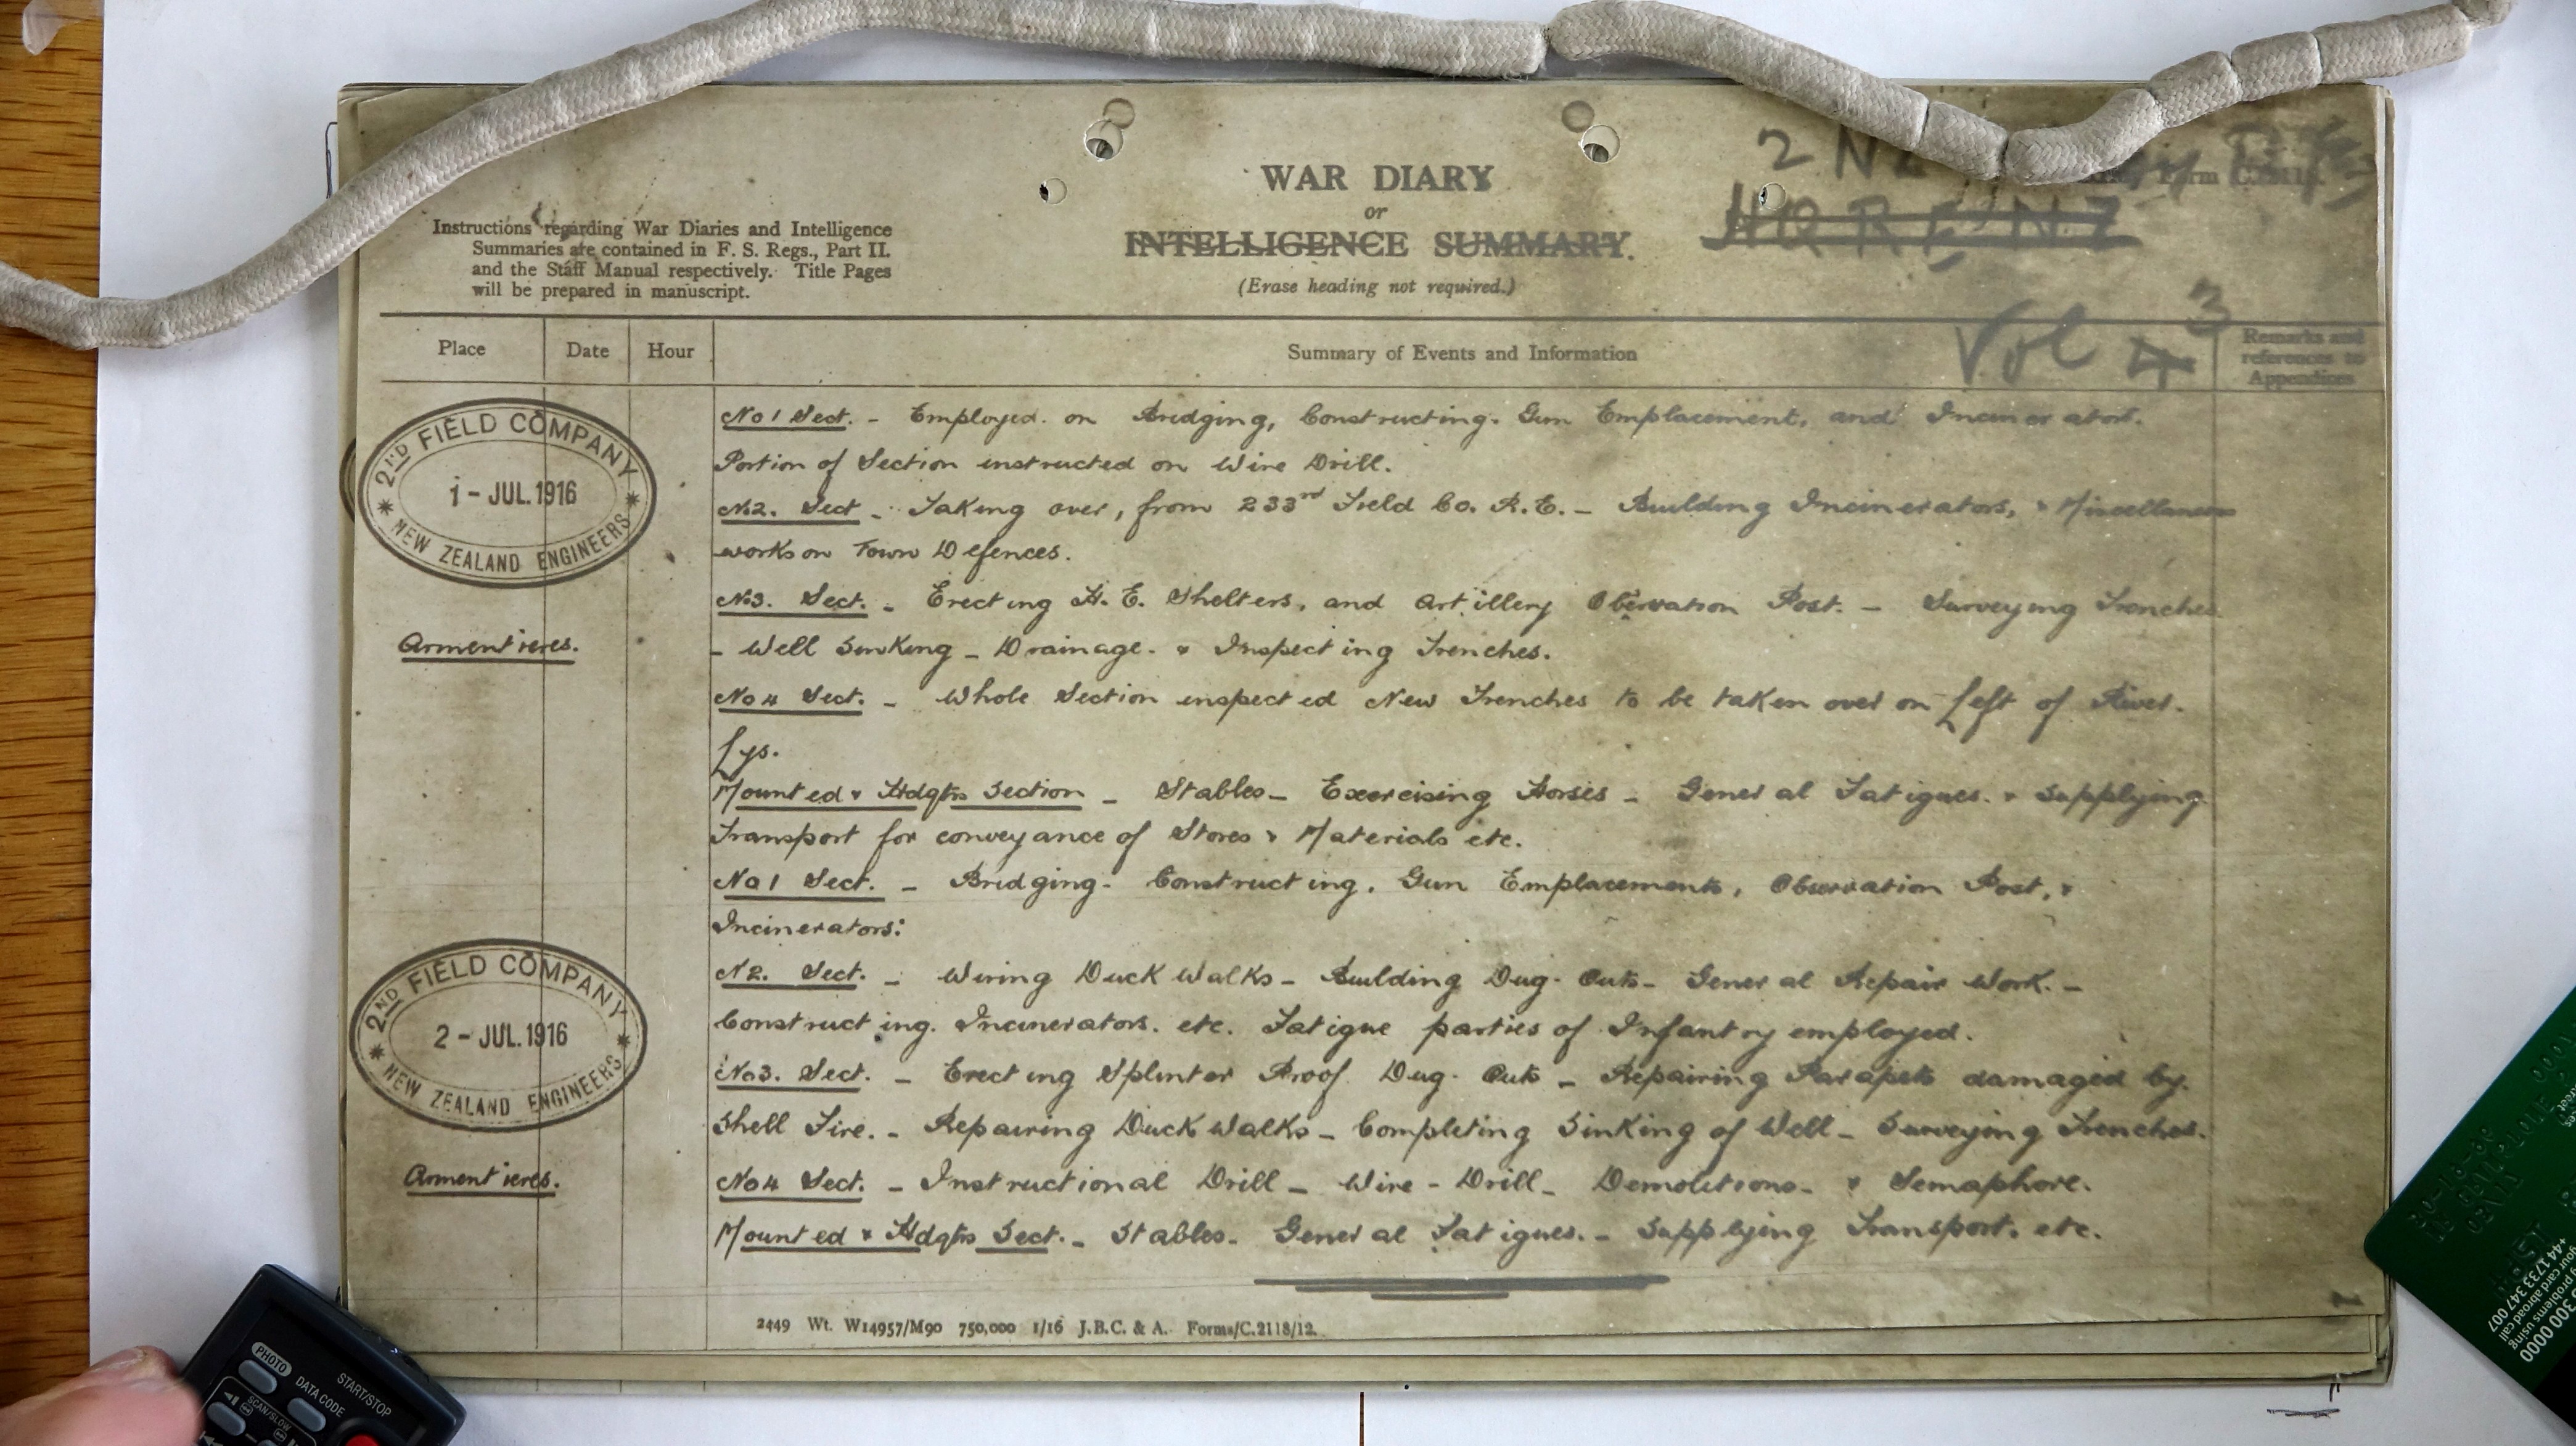 WAR DIARY
or
INTELLIGENCE SUMMARY.
(Erase heading not required.)
Instructions regarding War Diaries and Intelligence
Summaries are contained in F. S. Regs., Part II.
and the Staff Manual respectively. Title Pages
will be prepared in manuscript.
2 NZ
Form C.2118.
HQ R E N Z
Vol 4 3
Place Date Hour Summary of Events and Information Remarks and
references to
Appendices
2ND FIELD COMPANY
1 - JUL. 1916
NEW ZEALAND ENGINEERS
Armentieres.
No 1 Sect. - Employed. on Bridging, Constructing. Gun Emplacement, and Incinerator.
Portion of Section instructed on Wire Drill.
No2. Sect - Taking over, from 233rd Field Co. R.E. - Building Incinerators, & Miscellaneous
works on Town Defences.
No3. Sect. - Erecting H. E. Shelters, and Artillery Observation Post. - Surveying Trenches
- Well Sinking - Drainage. & Inspecting Trenches.
No 4 Sect. - Whole Section inspected New Trenches to be taken over on Left of River.
Lys.
Mounted & Hdqtrs Section - Stables - Exercising Horses - General Fatigues. & Supplying
Transport for conveyance of Stores & Materials etc.
2ND FIELD COMPANY
2 - JUL. 1916
NEW ZEALAND ENGINEERS
Armentieres.
No 1 Sect. - Bridging. Constructing. Gun Emplacements, Observation Post, &
Incinerators:
N2. Sect. - Wiring Duck Walks - Building Dug. Outs - General Repair Work. -
Constructing. Incinerators. etc. Fatigue parties of Infantry employed.
No3. Sect. - Erecting Splinter Proof Dug. Outs - Repairing Parapets damaged by.
Shell Fire. - Repairing Duck Walks - Completing Sinking of Well - Surveying Trenches.
No4 Sect. - Instructional Drill - Wire - Drill - Demolitions - & Semaphore.
Mounted & Hdqtrs Sect. - Stables - General Fatigues. - Supplying Transport. etc.
1
2449 Wt. W14957/M90 750,000 1/16 J.B.C. & A. Forms/C.2118/12.
PHOTO
DATA CODE
START/STOP
SCAN/SLOW
+44 1733 347 007